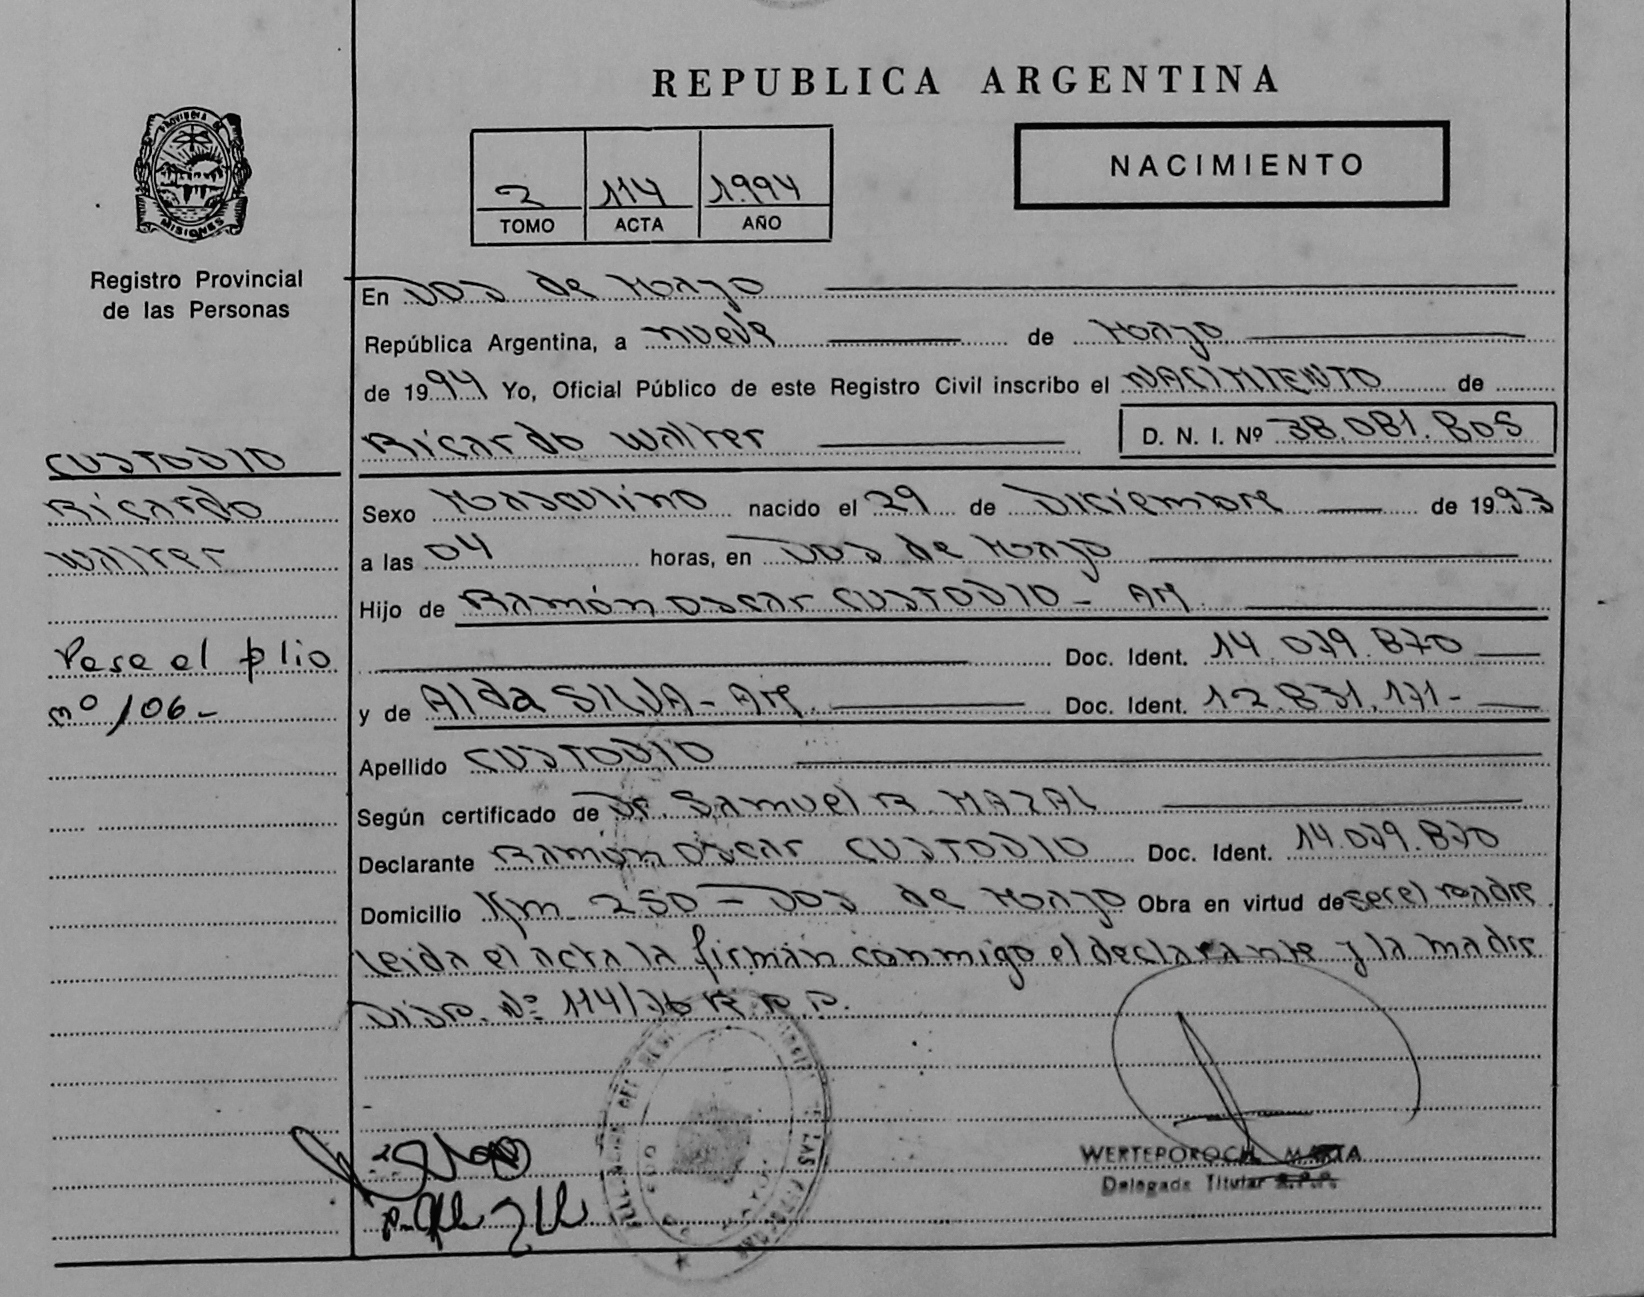 REPUBLICA ARGENTINA
PROVINCIA DE
MISIONES
Registro Provincial
de las Personas
2 114 1.994
TOMO ACTA AÑO
NACIMIENTO
En Dos de Mayo
República Argentina, a nueve de Mayo
de 1994 Yo, Oficial Público de este Registro Civil inscribo el NACIMIENTO de
Ricardo Walter D. N. I. Nº 38.081.805
CUSTODIO
Ricardo
Walter
Pase al folio
nº 106-
Sexo Masculino nacido el 29 de Diciembre de 1993
a las 04 horas, en Dos de Mayo
Hijo de Ramón Oscar CUSTODIO - AM
Doc. Ident. 14.079.870
y de Alda SILVA - Doc. Ident. 12.831.171-
Apellido CUSTODIO
Según certificado de Dr. Samuel R. MAZAL
Declarante Ramón Oscar CUSTODIO Doc. Ident. 14.079.870
Domicilio Km 250 - Dos de Mayo Obra en virtud de ser el padre
leida el acta la firman conmigo el declarante y la madre
Disp. Nº 114/76 R.P.P.
WERTEPOROCH, MARTA
Delegada Titular R.P.P.